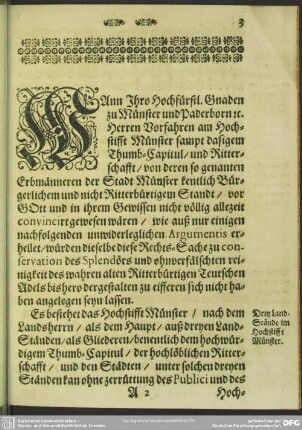 3
WAnn Ihro Hochfürstl. Gnaden
zu Münster und Paderborn ꝛc.
Herren Vorfahren am Hoch-
stifft Münster sampt dasigem
Thumb-Capitul/ und Ritter-
schafft/ von deren so genanten
Erbmänneren der Stadt Münster kentlich Bür-
gerlichem und nicht Ritterbürtigem Standt/ vor
GOtt und in ihrem Gewissen nicht völlig allezeit
convincirt gewesen wären/ wie auß nur einigen
nachfolgenden unwiderleglichen Argumentis er-
hellet/ würden dieselbe diese Rechts-Sache zu con-
servation des Splendörs und ohnverfälschten rei-
nigkeit des wahren alten Ritterbürtigen Teutschen
Adels bis hero dergestalten zu eifferen sich nicht ha-
ben angelegen seyn lassen.
Es bestehet das Hochstifft Münster/ nach dem
Landsherrn/ als dem Haupt/ auß dreyen Land-
Ständen/ als Gliederen/ benentlich dem hochwür-
digem Thumb-Capitul/ der hochlöblichen Ritter-
schafft/ und den Städten/ unter solchen dreyen
Ständen kan ohne zerrüttung des Publici und des
A 2 Hoch-
Drey Land-
Stände im
Hochstifft
Münster.